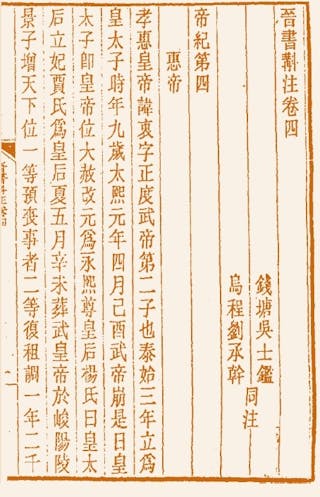 晉書斠注卷四
錢塘吳士鑑
烏程劉承幹
同注
帝紀第四
惠帝
孝惠皇帝諱衷字正度武帝第二子也泰始三年立爲
皇太子時年九歲太熙元年四月己酉武帝崩是日皇
太子即皇帝位大赦改元爲永熙尊皇后楊氏曰皇太
后立妃賈氏爲皇后夏五月辛未葬武皇帝於峻陽陵
景子增天下位一等預喪事者二等復租調一年二千